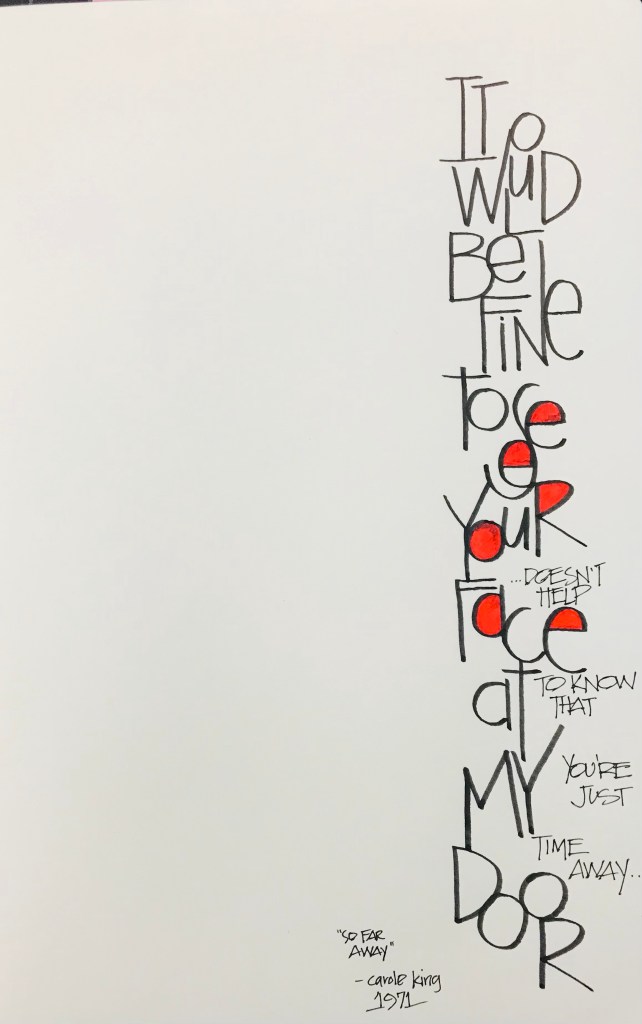 IT
WOULD
Be
FINe
To See
YouR
Face
aT
MY
DOOR
...DOESN'T
HELP
TO KNOW
THAT
YOU'RE
JUST
TIME
AWAY..
"SO FAR
AWAY"
- carole king
1971